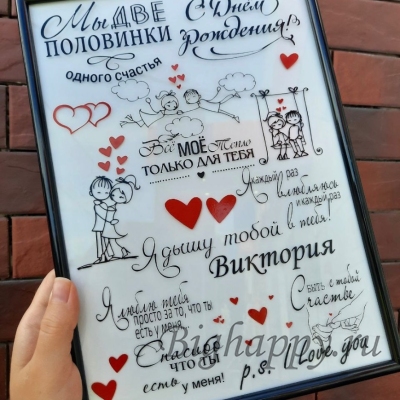 Мы ДВЕ
ПОЛОВИНКИ
одного счастья
С Днём
Рождения!
Всё МОЁ Тепло
ТОЛЬКО ДЛЯ ТЕБЯ
Я каждый раз
влюбляюсь
и каждый раз
в тебя!
Я дышу тобой
Виктория
Я люблю тебя
просто за то, что ты
есть у меня
Спасибо
что ты
есть у меня!
Быть с тобой
Счастье
p.s. I love you
Bighappy.ru